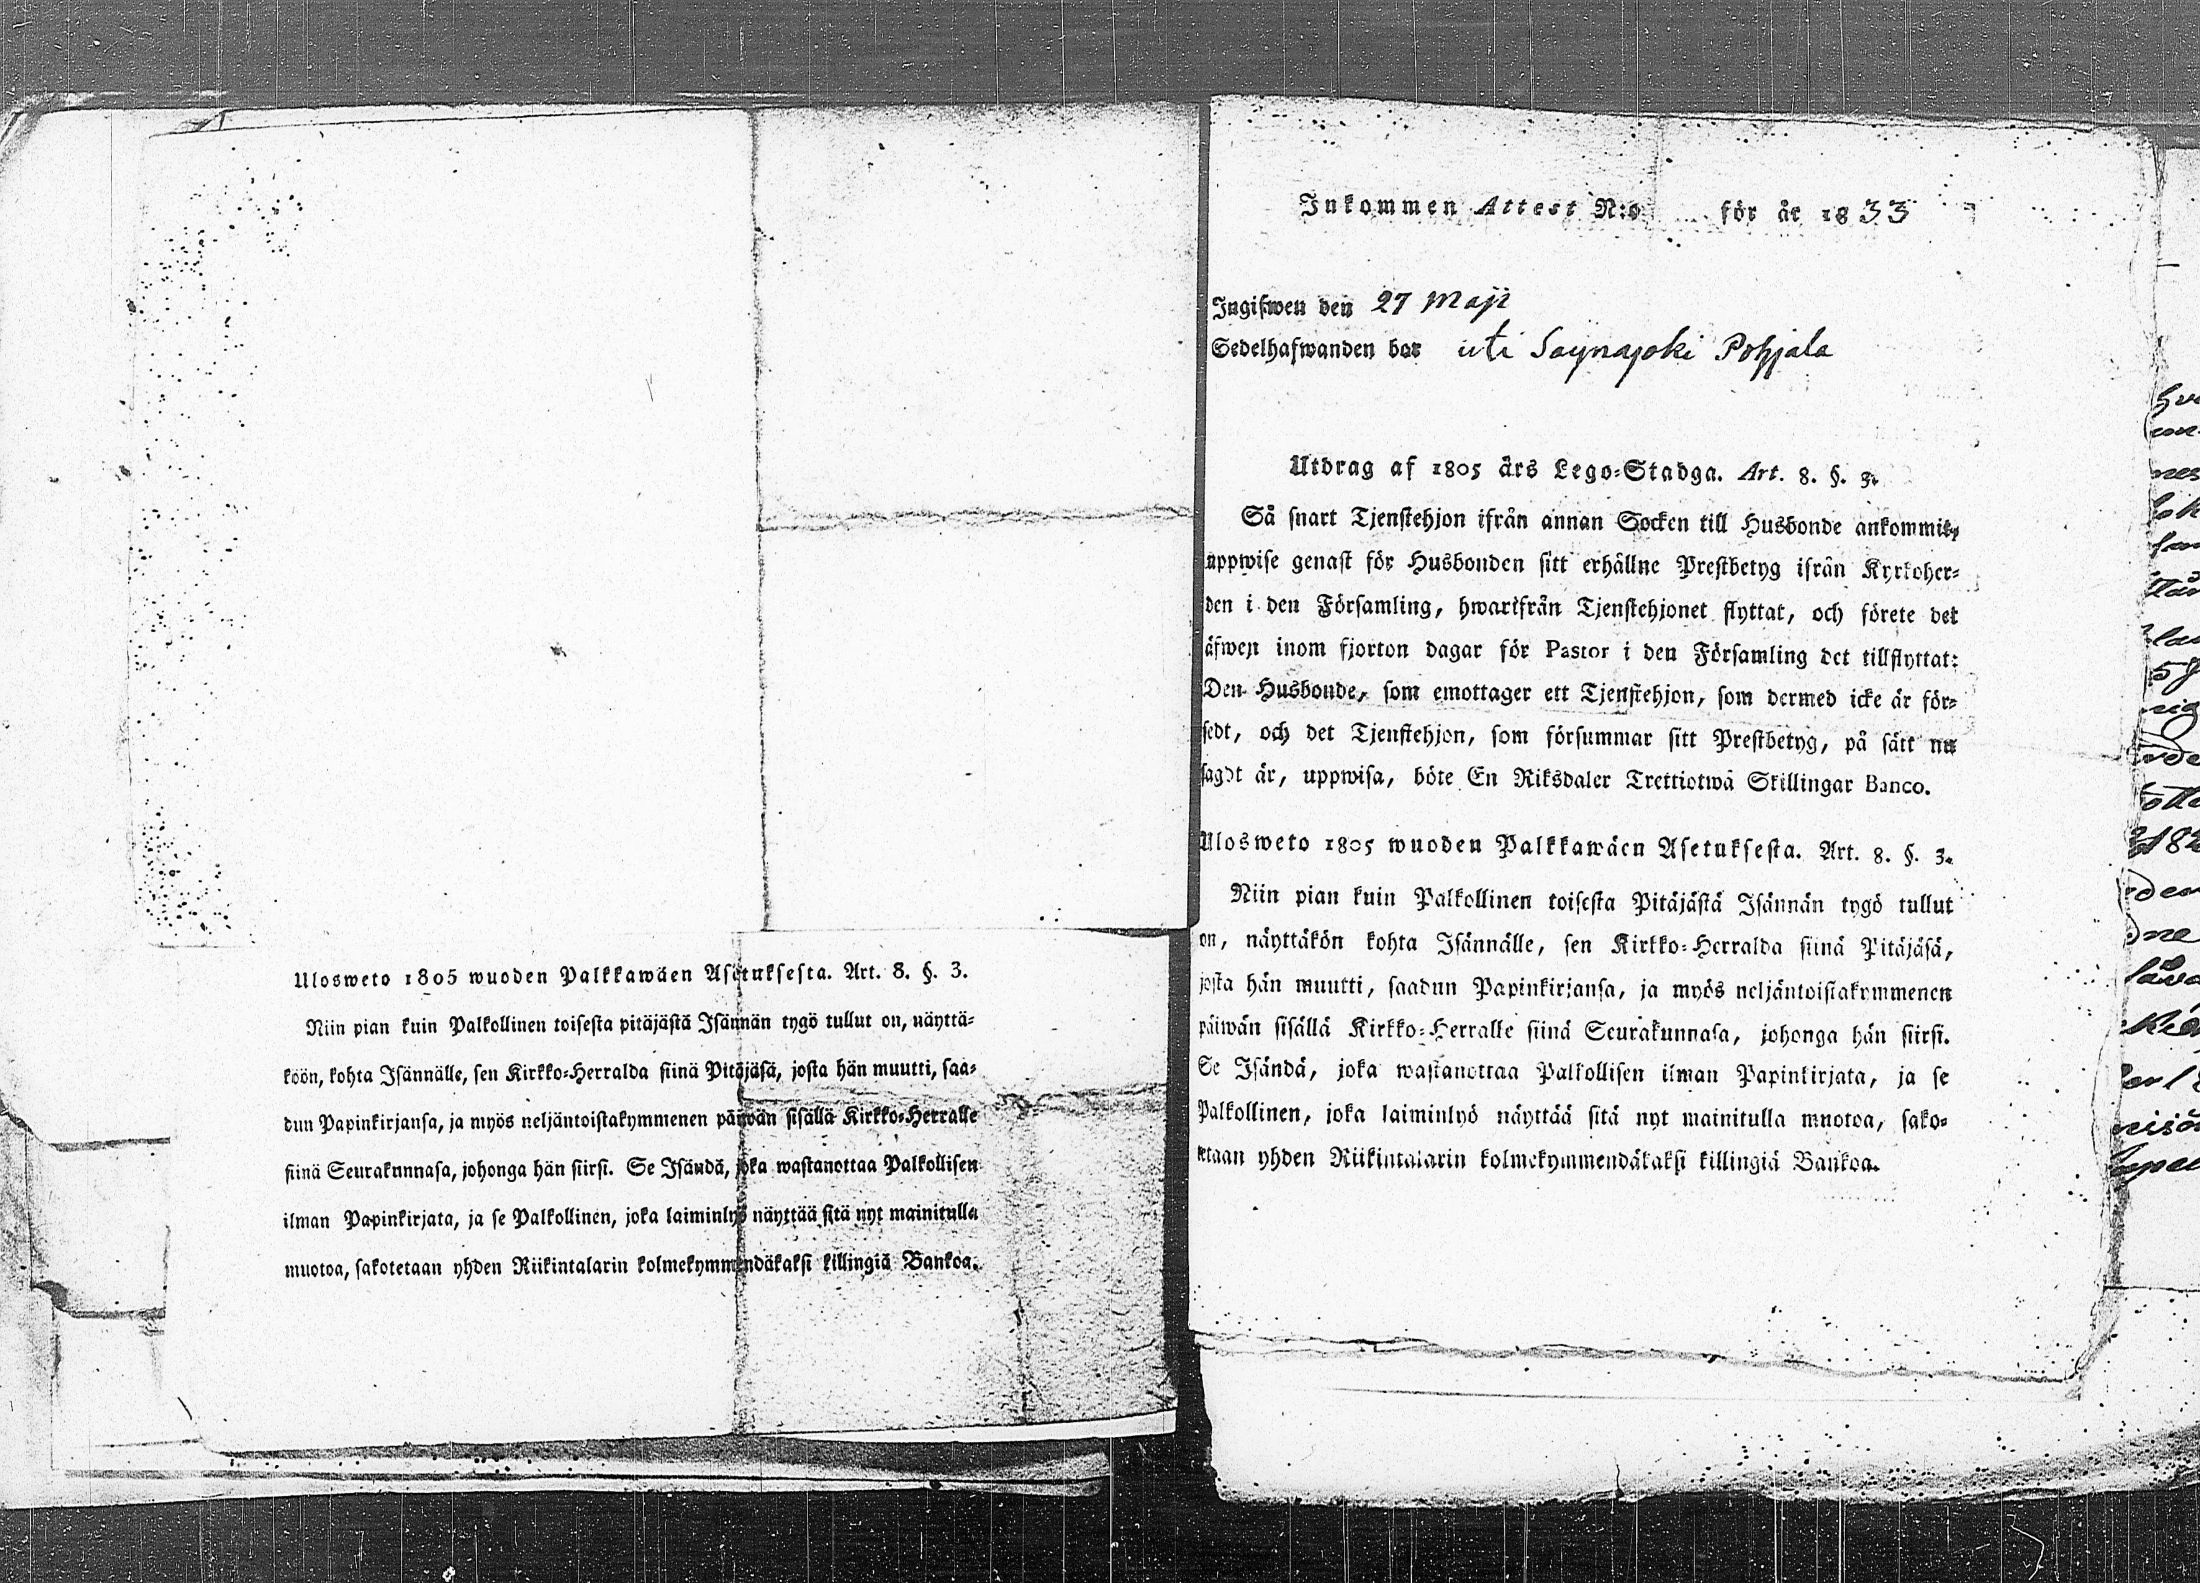 Ulosweto 1805 wuoden Palkkawäen Asetuksesta. Art. 8. §. 3.
Niin pian kuin Palkollinen toisesta pitäjästä Isännän tygö tullut on, näyttä-
köön, kohta Isännälle, sen Kirkko-Herralda siinä Pitäjäsä, josta hän muutti, saa-
dun Papinkirjansa, ja myös neljäntoistakymmenen päiwän sisällä Kirkko-Herralle
siinä Seurakunnasa, johonga hän siirsi. Se Isändä, joka wastanottaa Palkollisen
ilman Papinkirjata, ja se Palkollinen, joka laiminlyö näyttää sitä nyt mainitulla
muotoa, sakotetaan yhden Riikintalarin kolmekymmendäkaksi killingiä Bankoa.
Inkommen Attest N:o för år 1833
Ingifwen den 27 Maji
Sedelhafwanden bor uti Saynajoki Pohjala
Utdrag af 1805 års Lego-Stadga. Art. 8. §. 3.
Så snart Tjenstehjon ifrån annan Socken till Husbonde ankommit,
uppwise genast för Husbonden sitt erhållne Prestbetyg ifrån Kyrkoher-
den i den Församling, hwarifrån Tjenstehjonet flyttat, och förete det
äfwen inom fjorton dagar för Pastor i den Församling det tillflyttat:
Den Husbonde, som emottager ett Tjenstehjon, som dermed icke är för-
sedt, och det Tjenstehjon, som försummar sitt Prestbetyg, på sätt nu
sagdt är, uppwisa, böte En Riksdaler Trettiotwå Skillingar Banco.
Ulosweto 1805 wuoden Palkkawäen Asetuksesta. Art. 8. §. 3.
Niin pian kuin Palkollinen toisesta Pitäjästä Isännän tygö tullut
on, näyttäkön kohta Isännälle, sen Kirkko-Herralda siinä Pitäjäsä,
josta hän muutti, saadun Papinkirjansa, ja myös neljäntoistakymmenen
päiwän sisällä Kirkko-Herralle siinä Seurakunnasa, johonga hän siirsi.
Se Isändä, joka wastanottaa Palkollisen ilman Papinkirjata, ja se
Palkollinen, joka laiminlyö näyttää sitä nyt mainitulla muotoa, sako-
tetaan yhden Riikintalarin kolmekymmendäkaksi killingiä Bankoa.